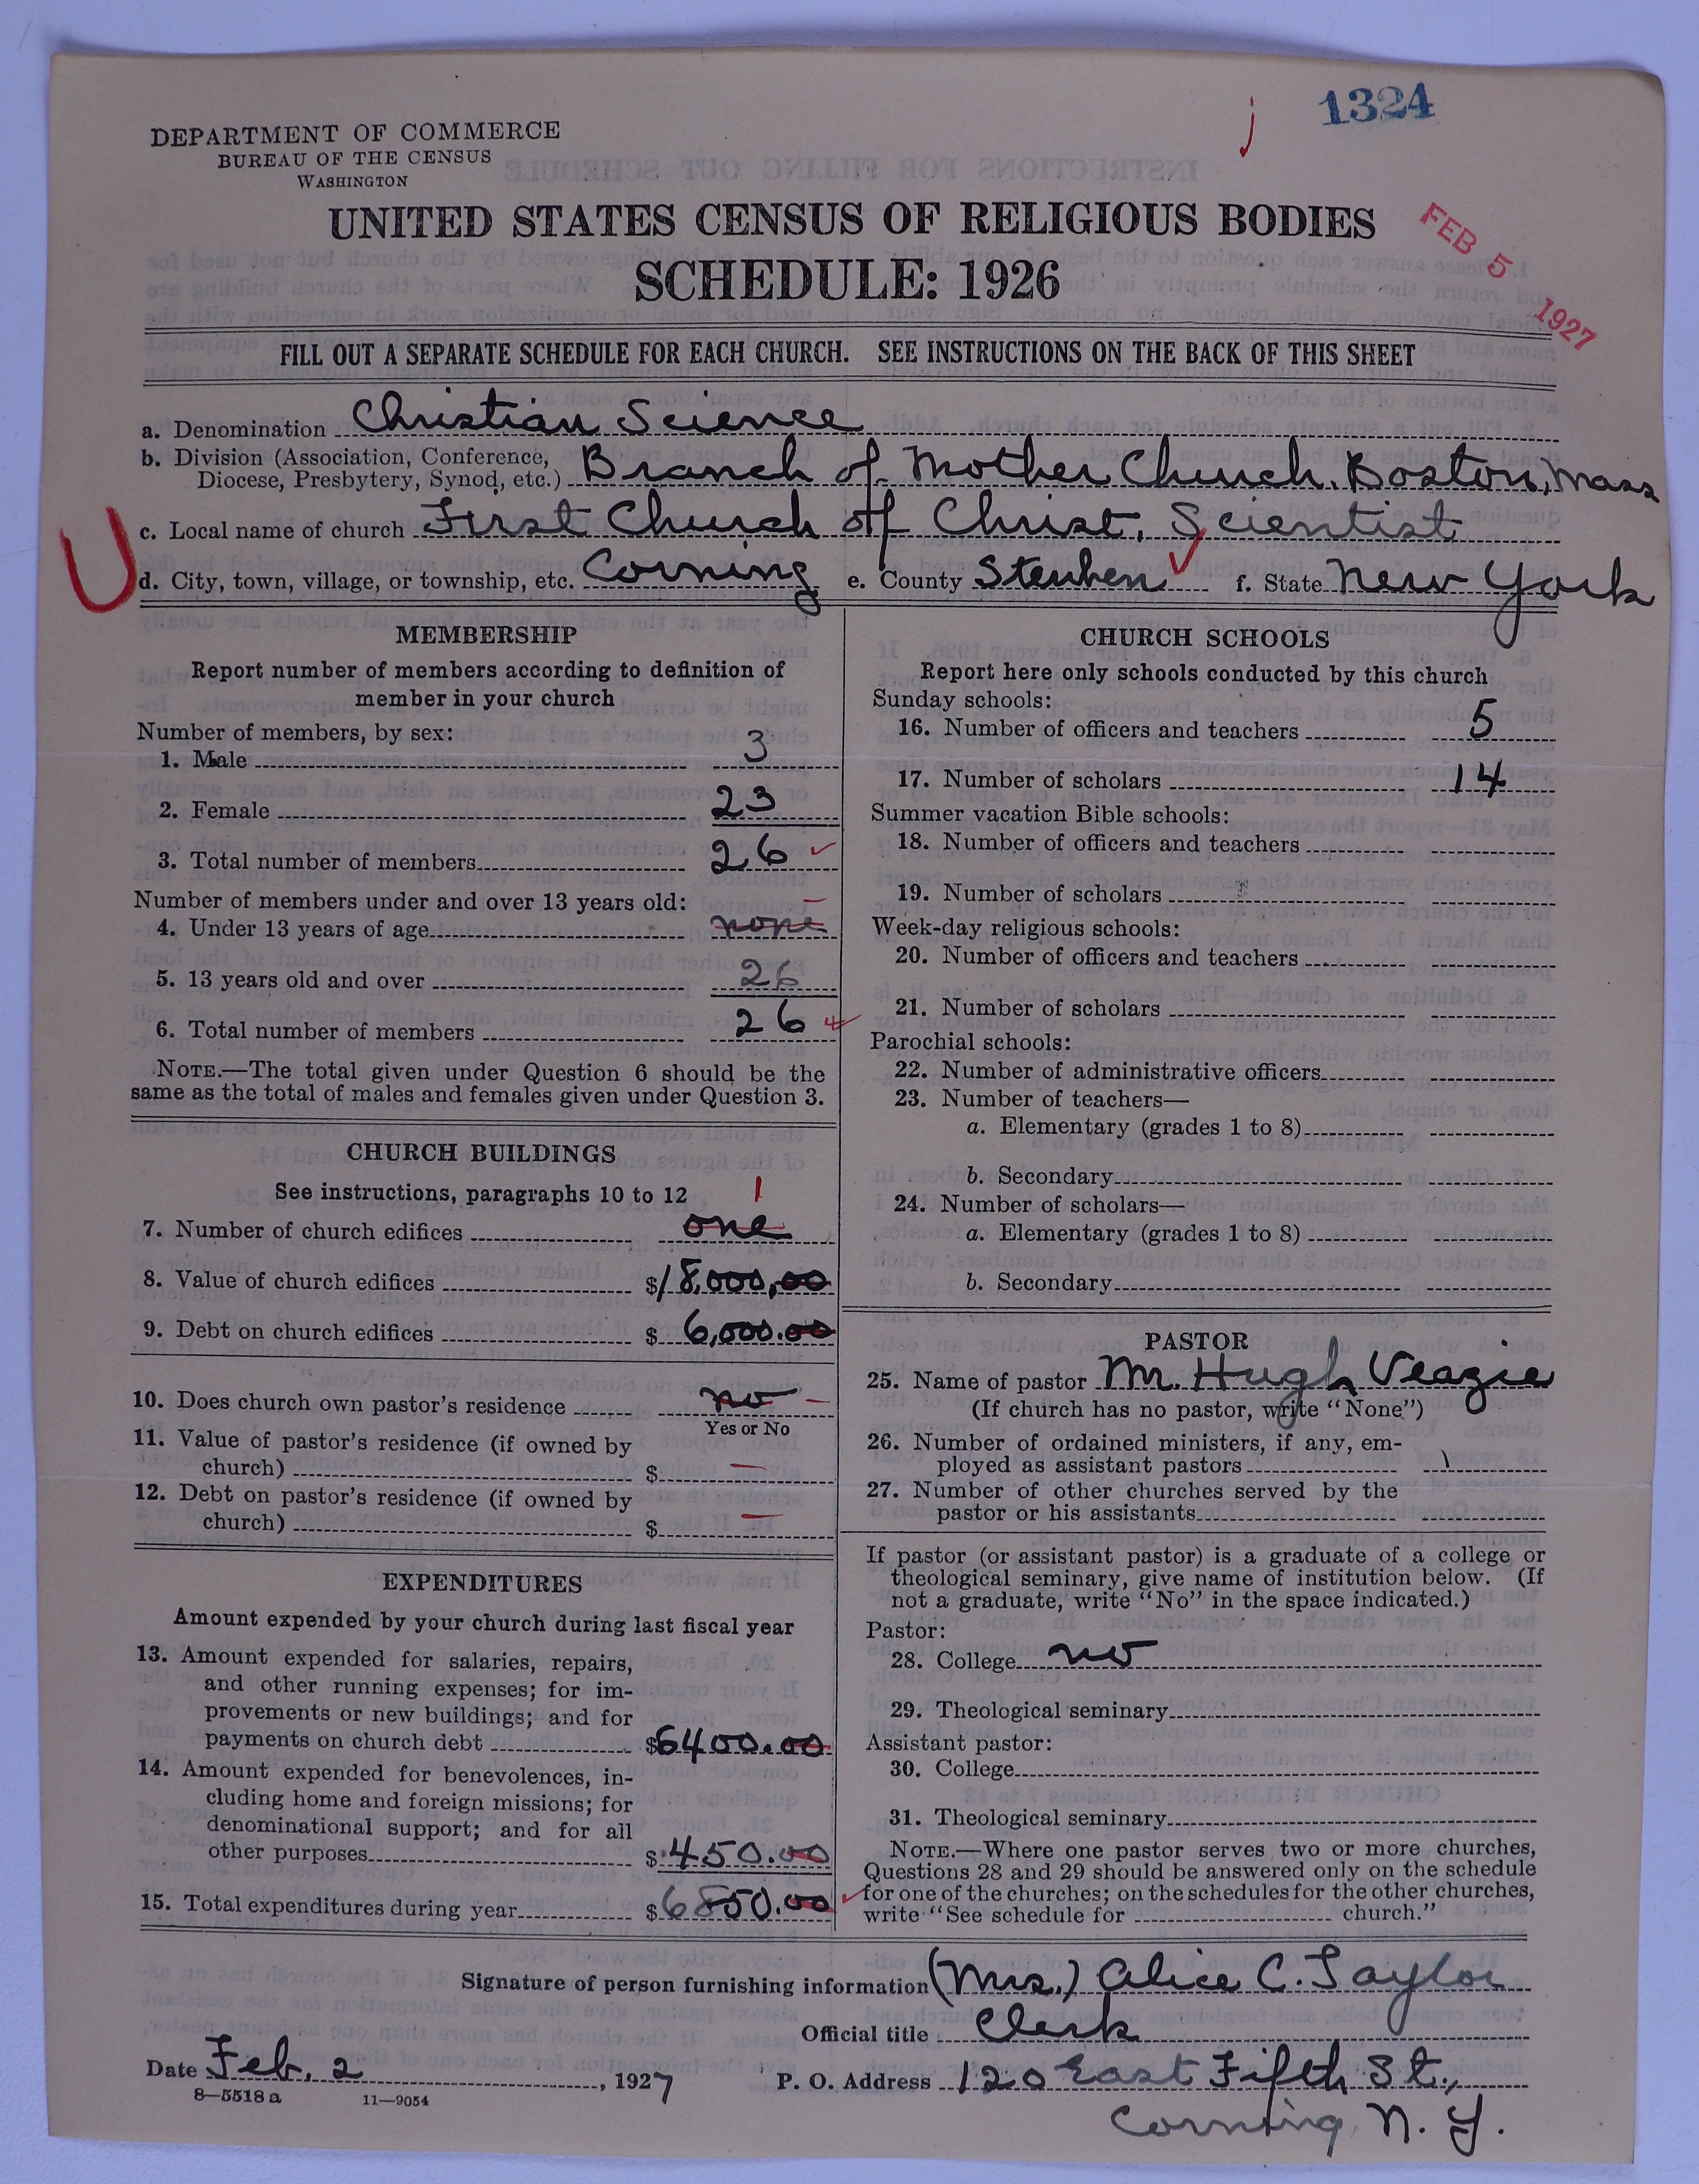 1324
j
DEPARTMENT OF COMMERCE
BUREAU OF THE CENSUS
WASHINGTON
UNITED STATES CENSUS OF RELIGIOUS BODIES
SCHEDULE: 1926
FEB 5 1927
FILL OUT A SEPARATE SCHEDULE FOR EACH CHURCH. SEE INSTRUCTIONS ON THE BACK OF THIS SHEET
a. Denomination Christian Science
b. Division (Association, Conference, Diocese, Presbytery, Synod, etc.) Branch of Mother Church, Boston, Mass
c. Local name of church First Church of Christ, Scientist
U
d. City, town, village, or township, etc. Corning e. County Steuben f. State New York
MEMBERSHIP
Report number of members according to definition of
member in your church
Number of members, by sex:
1. Male 3
2. Female 23
3. Total number of members 26
Number of members under and over 13 years old:
4. Under 13 years of age none
5. 13 years old and over 26
6. Total number of members 26
NOTE.—The total given under Question 6 should be the
same as the total of males and females given under Question 3.
CHURCH BUILDINGS
See instructions, paragraphs 10 to 12
1
7. Number of church edifices one
8. Value of church edifices $18,000,00
9. Debt on church edifices $6,000.00
10. Does church own pastor's residence no
Yes or No
11. Value of pastor's residence (if owned by
church) $ —
12. Debt on pastor's residence (if owned by
church) $ —
EXPENDITURES
Amount expended by your church during last fiscal year
13. Amount expended for salaries, repairs,
and other running expenses; for im-
provements or new buildings; and for
payments on church debt $6400.00
14. Amount expended for benevolences, in-
cluding home and foreign missions; for
denominational support; and for all
other purposes $450.00
15. Total expenditures during year $6850.00
CHURCH SCHOOLS
Report here only schools conducted by this church
Sunday schools:
16. Number of officers and teachers 5
17. Number of scholars 14
Summer vacation Bible schools:
18. Number of officers and teachers
19. Number of scholars
Week-day religious schools:
20. Number of officers and teachers
21. Number of scholars
Parochial schools:
22. Number of administrative officers
23. Number of teachers—
a. Elementary (grades 1 to 8)
b. Secondary
24. Number of scholars—
a. Elementary (grades 1 to 8)
b. Secondary
PASTOR
25. Name of pastor Mr. Hugh Veazie
(If church has no pastor, write "None")
26. Number of ordained ministers, if any, em-
ployed as assistant pastors
27. Number of other churches served by the
pastor or his assistants
If pastor (or assistant pastor) is a graduate of a college or
theological seminary, give name of institution below. (If
not a graduate, write "No" in the space indicated.)
Pastor:
28. College no
29. Theological seminary
Assistant pastor:
30. College
31. Theological seminary
NOTE.—Where one pastor serves two or more churches,
Questions 28 and 29 should be answered only on the schedule
for one of the churches; on the schedules for the other churches,
write "See schedule for church."
Signature of person furnishing information (Mrs.) Alice C. Taylor
Official title Clerk
Date Feb. 2, 1927 P. O. Address 120 East Fifth St.,
8—5518 a 11—9054
Corning, N. Y.